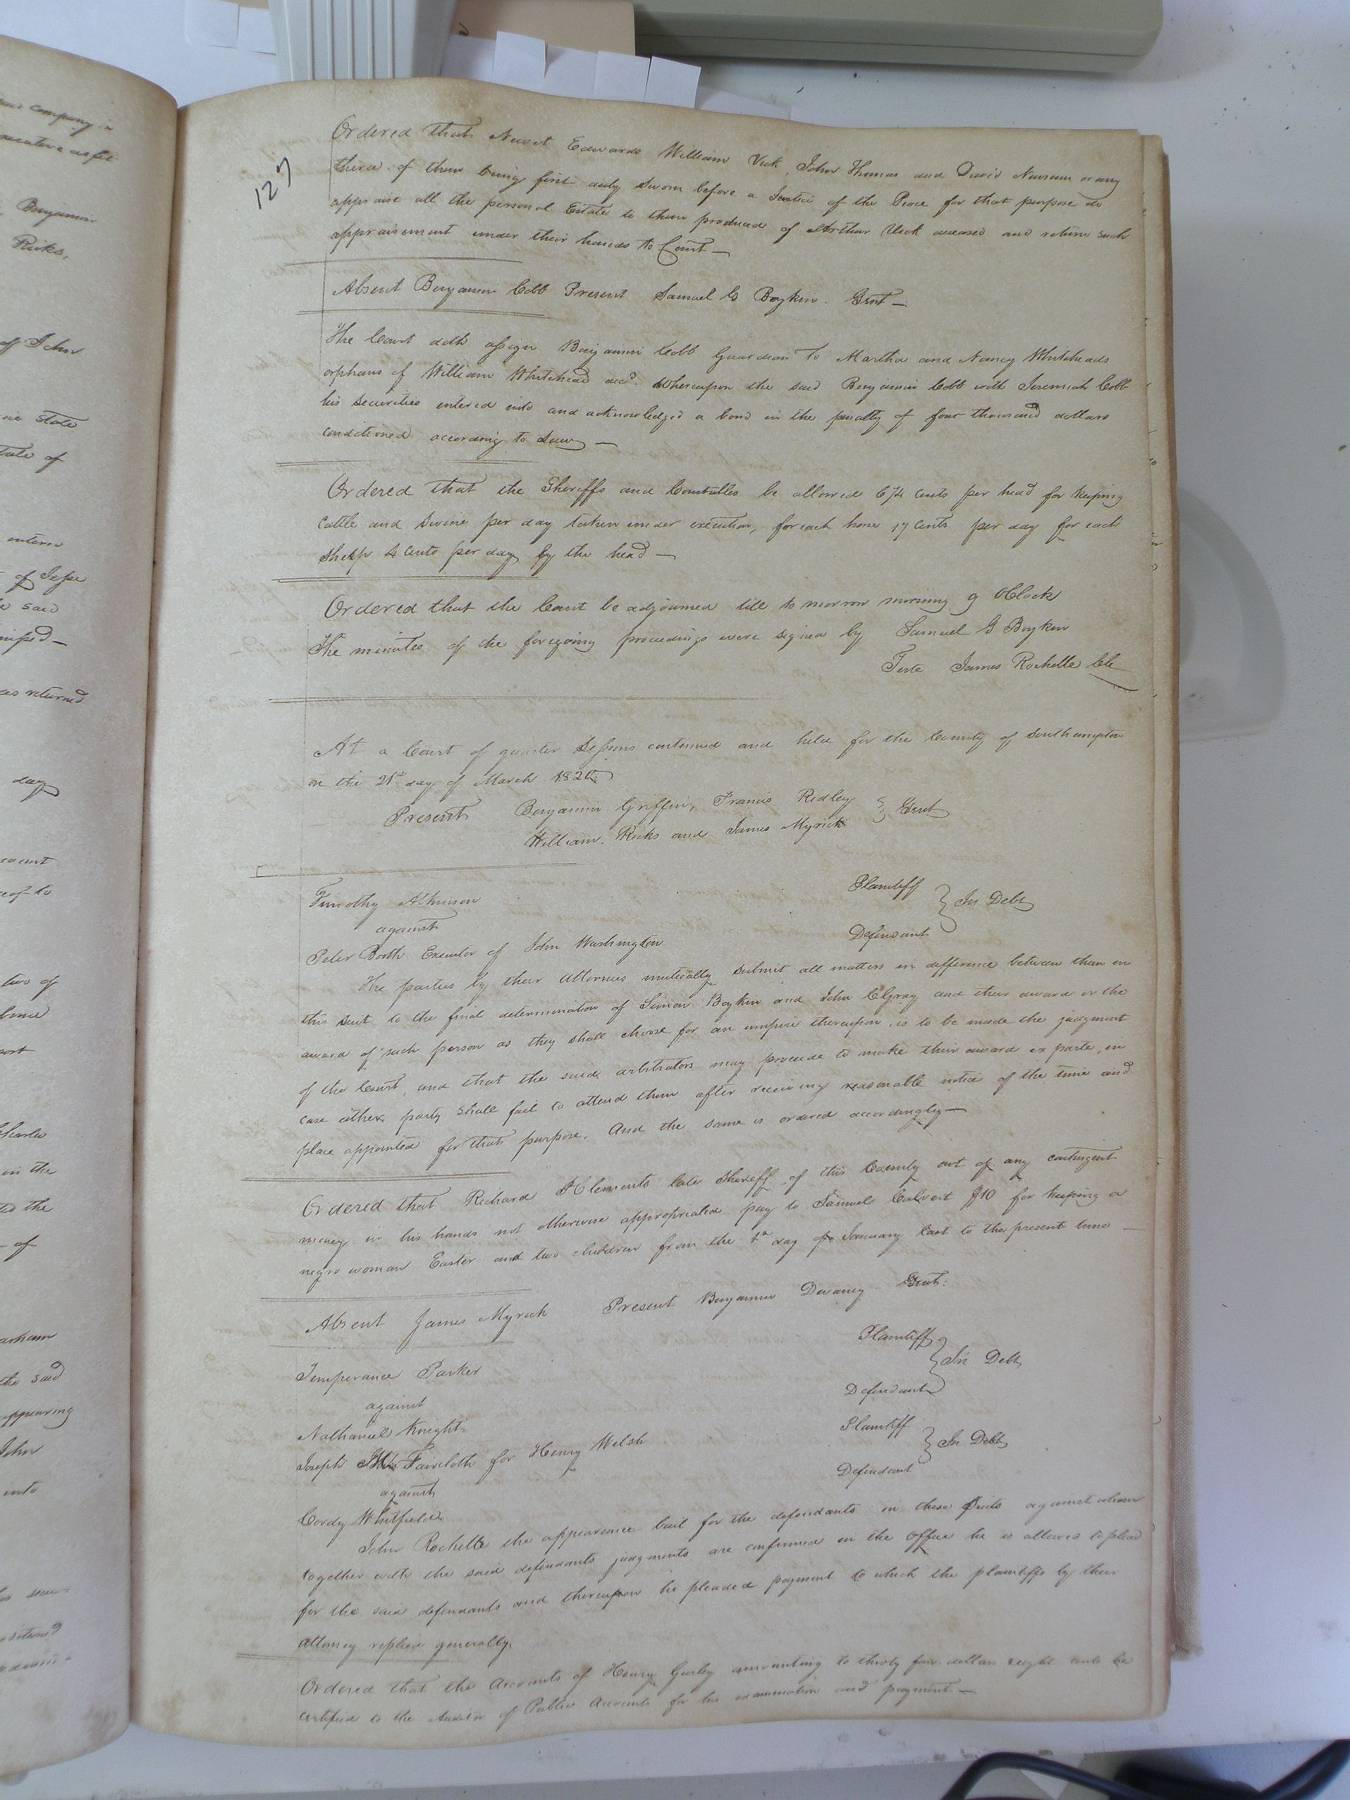 127
Ordered that Newit Edwards William Vick, John Thomas and David Newsum or any
three of them being first duly sworn before a Justice of the Peace for that purpose do
appraise all the personal Estate to them produced of Arthur Vick deceased and return such
appraisement under their hands to Court
Absent Benjamin Cobb Present Samuel G Boykin Gent
The Court doth assign Benjamin Cobb Guardian to Martha and Nancy Whiteheads
orphans of William Whitehead decd. Whereupon the said Benjamin Cobb with Jeremiah Cobb
his securities entered into and acknowledged a bond in the penalty of four thousand dollars
conditioned according to Law
Ordered that the Sheriffs and Constables be allowed 6¼ cents per head for keeping
cattle and swine per day taken under execution, for each horse 17 cents per day for each
sheep 4 cents per day by the head
Ordered that the Court be adjourned till to morrow morning 9 OClock
The minutes of the foregoing proceedings were signed by Samuel G Boykin
Teste James Rochelle Clk
At a Court of quarter Sessions continued and held for the County of Southampton
on the 21st day of March 1820
Present Benjamin Griffin, Francis Ridley
William Ricks and James Myrick } Gent
Timothy Atkinson Plaintiff
against } In Debt
Peter Booth Executor of John Washington Defendant
The parties by their Attornies mutually submit all matters in difference between them in
this suit to the final determination of Simon Boykin and John C Gray and their award or the
award of such person as they shall choose for an umpire thereupon is to be made the judgment
of the Court, and that the said arbitrators may proceede to make their award ex parte, in
case either party shall fail to attend them after receiving reasonable notice of the time and
place appointed for that purpose. And the same is ordered accordingly
Ordered that Richard Clements late Sheriff of this County out of any contingent
money in his hands not otherwise appropriated pay to Samuel Calvert $10 for keeping a
negro woman Easter and two children from the day of January last to the present time
Absent James Myrick Present Benjamin Devany Gent.
Temperance Parker Plaintiff
against } In Debt
Nathaniel Knight Defendant
Joseph Faircloth for Henry Welsh Plaintiff
against } In Debt
Cordy Whitfield Defendant
John Rochelle the appearance bail for the defendants in these suits against whom
together with the said defendants judgments are confirmed in the office he is allowed to plead
for the said defendants and thereupon he pleaded payment to which the plaintiffs by their
attorney replied generally.
Ordered that the accounts of Henry Gurley amounting to thirty four dollars eight cents be
certified to the Auditor of Public Accounts for his examination and payment